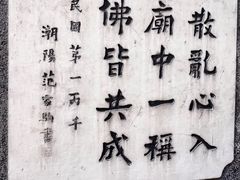 散亂心入
廟中一稱
佛皆共成
民國第一丙千
潮陽范
書